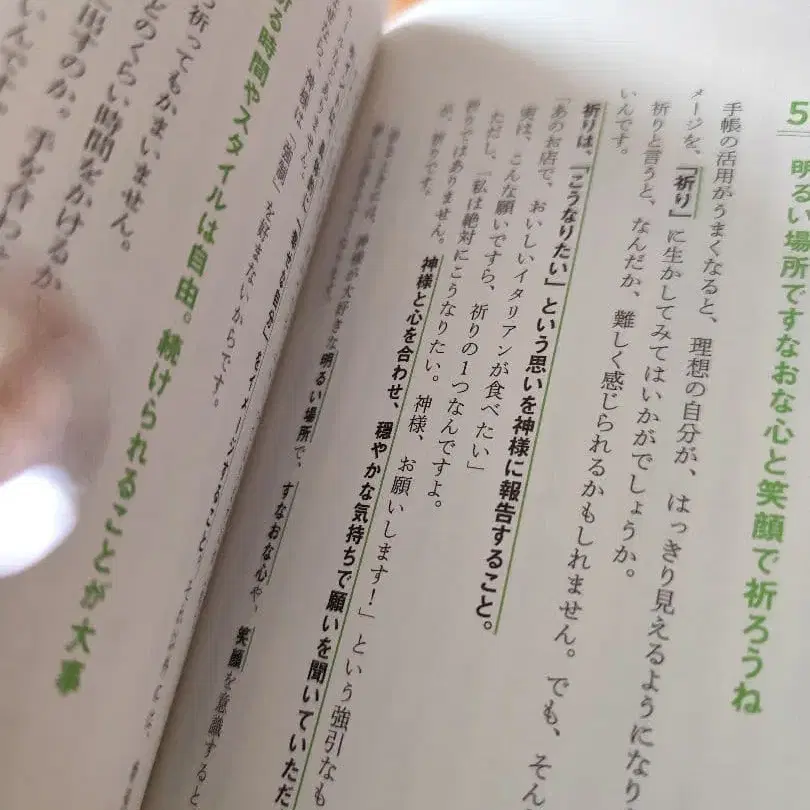 5 明るい場所ですなおな心と笑顔で祈ろうね
手帳の活用がうまくなると、理想の自分が、はっきり見えるようになり
メージを、「祈り」に生かしてみてはいかがでしょうか。
祈りと言うと、なんだか、難しく感じられるかもしれません。でも、そん
いんです。
祈りは、「こうなりたい」という思いを神様に報告すること。
「あのお店で、おいしいイタリアンが食べたい」
実は、こんな願いですら、祈りの1つなんですよ。
ただし、「私は絶対にこうなりたい。神様、お願いします!」という強引なも
祈りではありません。神様と心を合わせ、穏やかな気持ちで願いを聞いていただ
が、祈りです。
神様が大好きな明るい場所で、すなおな心や、笑顔を意識すると
神様は「強制」を好まないからです。
る時間やスタイルは自由。続けられることが大事
祈ってもかまいません。
どのくらい時間をかけるか
出すのか。手を合わせ
いんです。